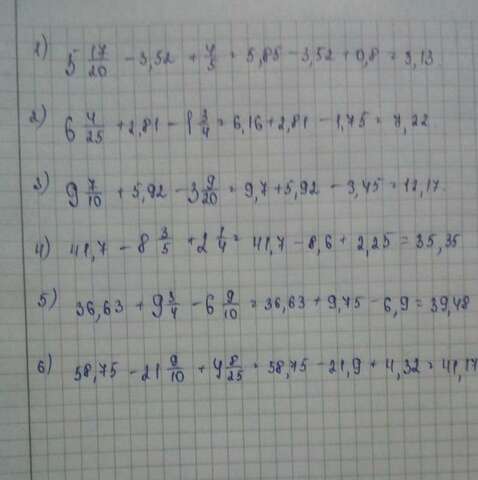 1) 5 17/20 - 3,52 + 4/5 = 5,85 - 3,52 + 0,8 = 3,13
2) 6 4/25 + 2,81 - 1 3/4 = 6,16 + 2,81 - 1,75 = 7,22
3) 9 7/10 + 5,92 - 3 9/20 = 9,7 + 5,92 - 3,45 = 12,17
4) 41,7 - 8 3/5 + 2 1/4 = 41,7 - 8,6 + 2,25 = 35,35
5) 36,63 + 9 3/4 - 6 9/10 = 36,63 + 9,75 - 6,9 = 39,48
6) 58,75 - 21 9/10 + 4 8/25 = 58,75 - 21,9 + 4,32 = 41,17